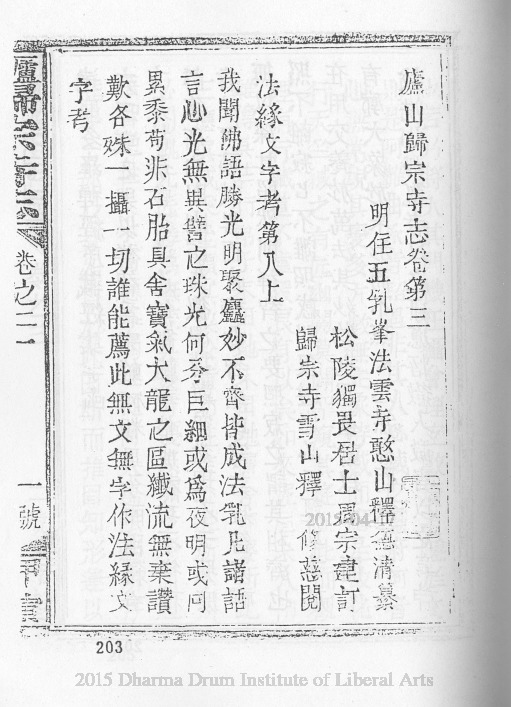 廬山歸宗寺志卷第三
明住五乳峯法雲寺憨山釋德清纂
松陵獨畏居士周宗建訂
歸宗寺雪山釋 修慈閱
法緣文字考第八上
我聞佛語勝光明聚麤妙不齊皆成法乳凡諸語
言心光無異譬之珠光何分巨細或為夜明或同
累黍苟非石胎具含寶氣大龍之區纖流無棄讚
歎各殊一攝一切誰能薦此無文無字作法緣文
字考
歸宗寺志
卷之三
一號
203
2015 Dharma Drum Institute of Liberal Arts